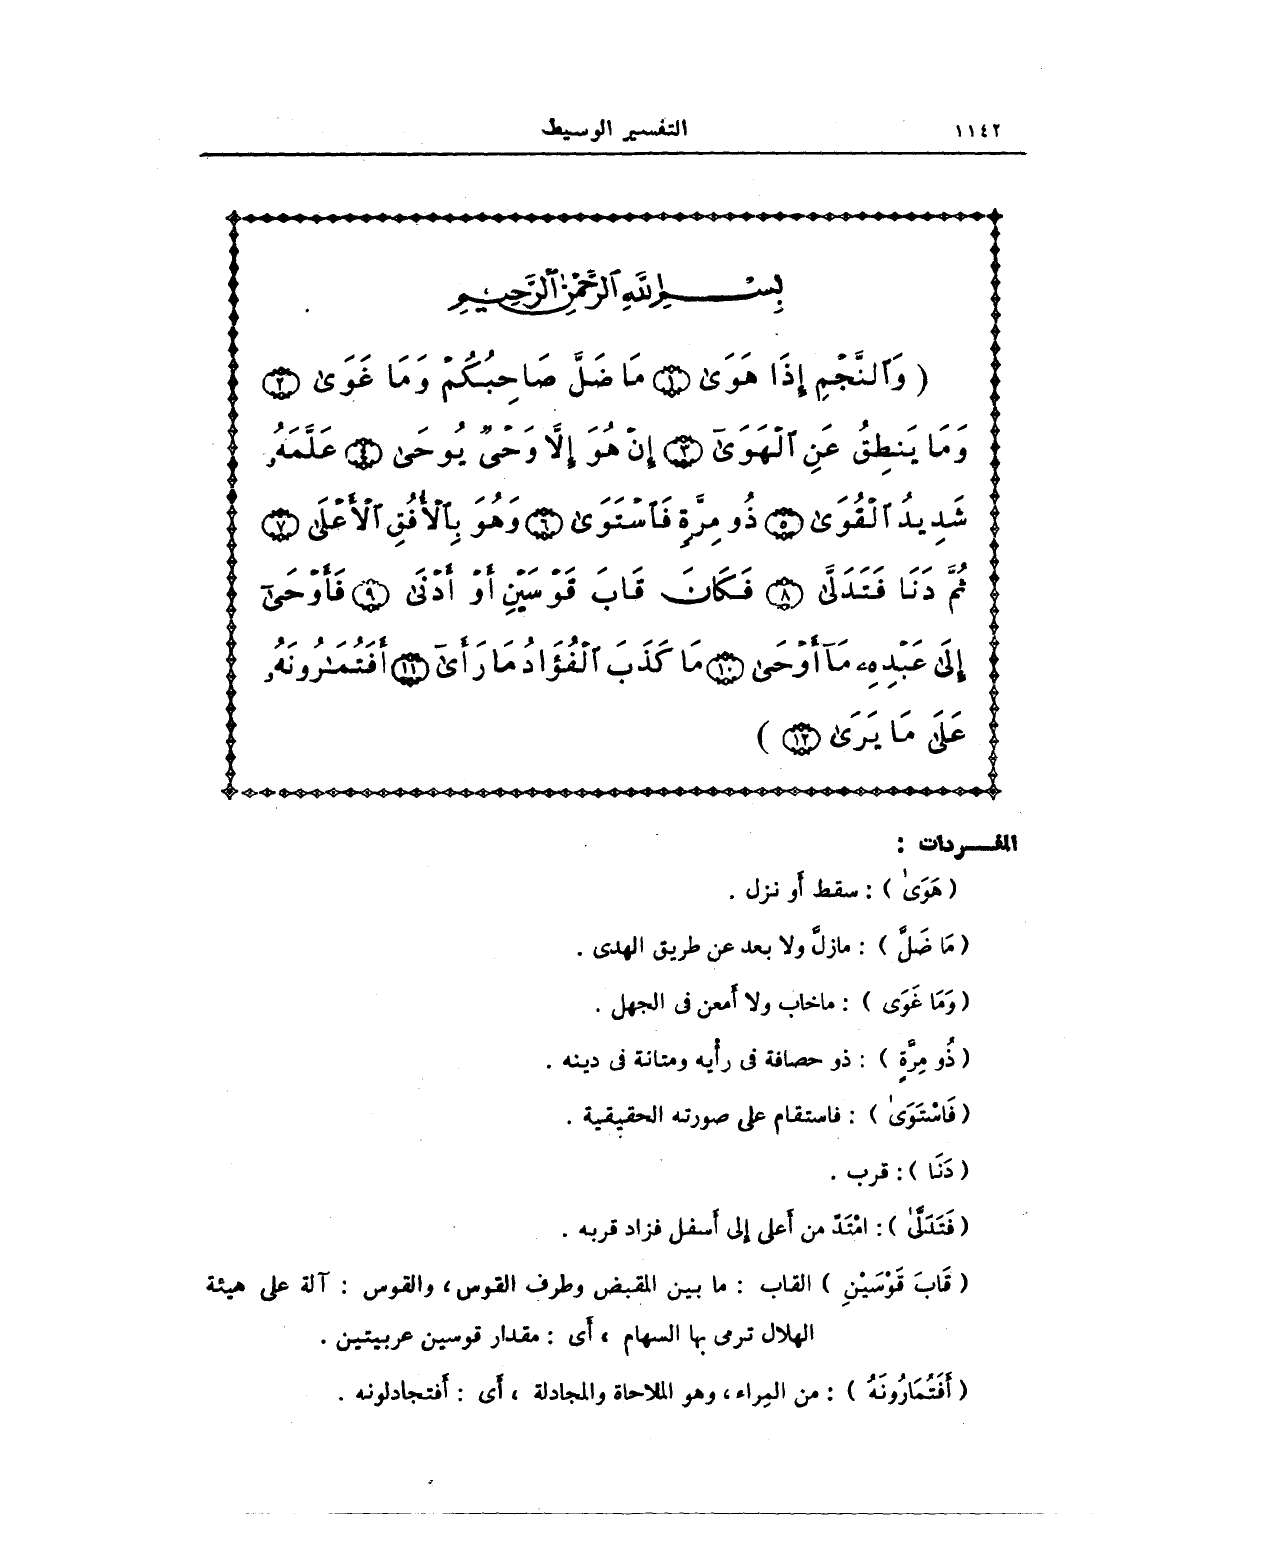 ١١٤٢
التفسير الوسيط
بِسْمِ ٱللَّهِ ٱلرَّحْمَٰنِ ٱلرَّحِيمِ
( وَٱلنَّجْمِ إِذَا هَوَىٰ ١ مَا ضَلَّ صَاحِبُكُمْ وَمَا غَوَىٰ ٢
وَمَا يَنطِقُ عَنِ ٱلْهَوَىٰٓ ٣ إِنْ هُوَ إِلَّا وَحْىٌ يُوحَىٰ ٤ عَلَّمَهُۥ
شَدِيدُ ٱلْقُوَىٰ ٥ ذُو مِرَّةٍ فَٱسْتَوَىٰ ٦ وَهُوَ بِٱلْأُفُقِ ٱلْأَعْلَىٰ ٧
ثُمَّ دَنَا فَتَدَلَّىٰ ٨ فَكَانَ قَابَ قَوْسَيْنِ أَوْ أَدْنَىٰ ٩ فَأَوْحَىٰٓ
إِلَىٰ عَبْدِهِۦ مَآ أَوْحَىٰ ١٠ مَا كَذَبَ ٱلْفُؤَادُ مَا رَأَىٰٓ ١١ أَفَتُمَٰرُونَهُۥ
عَلَىٰ مَا يَرَىٰ ١٢ )
المفـــردات :
( هَوَىٰ ) : سقط أَو نزل .
( مَا ضَلَّ ) : مازلَّ ولا بعد عن طريق الهدى .
( وَمَا غَوَى ) : ماخاب ولا أَمعن فى الجهل .
( ذُو مِرَّةٍ ) : ذو حصافة فى رأْيه ومتانة فى دينه .
( فَاسْتَوَىٰ ) : فاستقام على صورته الحقيقية .
( دَنَا ) : قرب .
( فَتَدَلَّىٰ ) : امْتَدّ من أَعلى إلى أَسفل فزاد قربه .
( قَابَ قَوْسَيْنِ ) القاب : ما بين المقبض وطرف القوس ، والقوس : آلة على هيئة
الهلال ترمى بها السهام ، أَى : مقدار قوسين عربيتين .
( أَفَتُمَارُونَهُ ) : من المِراء ، وهو الملاحاة والمجادلة ، أَى : أَفتجادلونه .